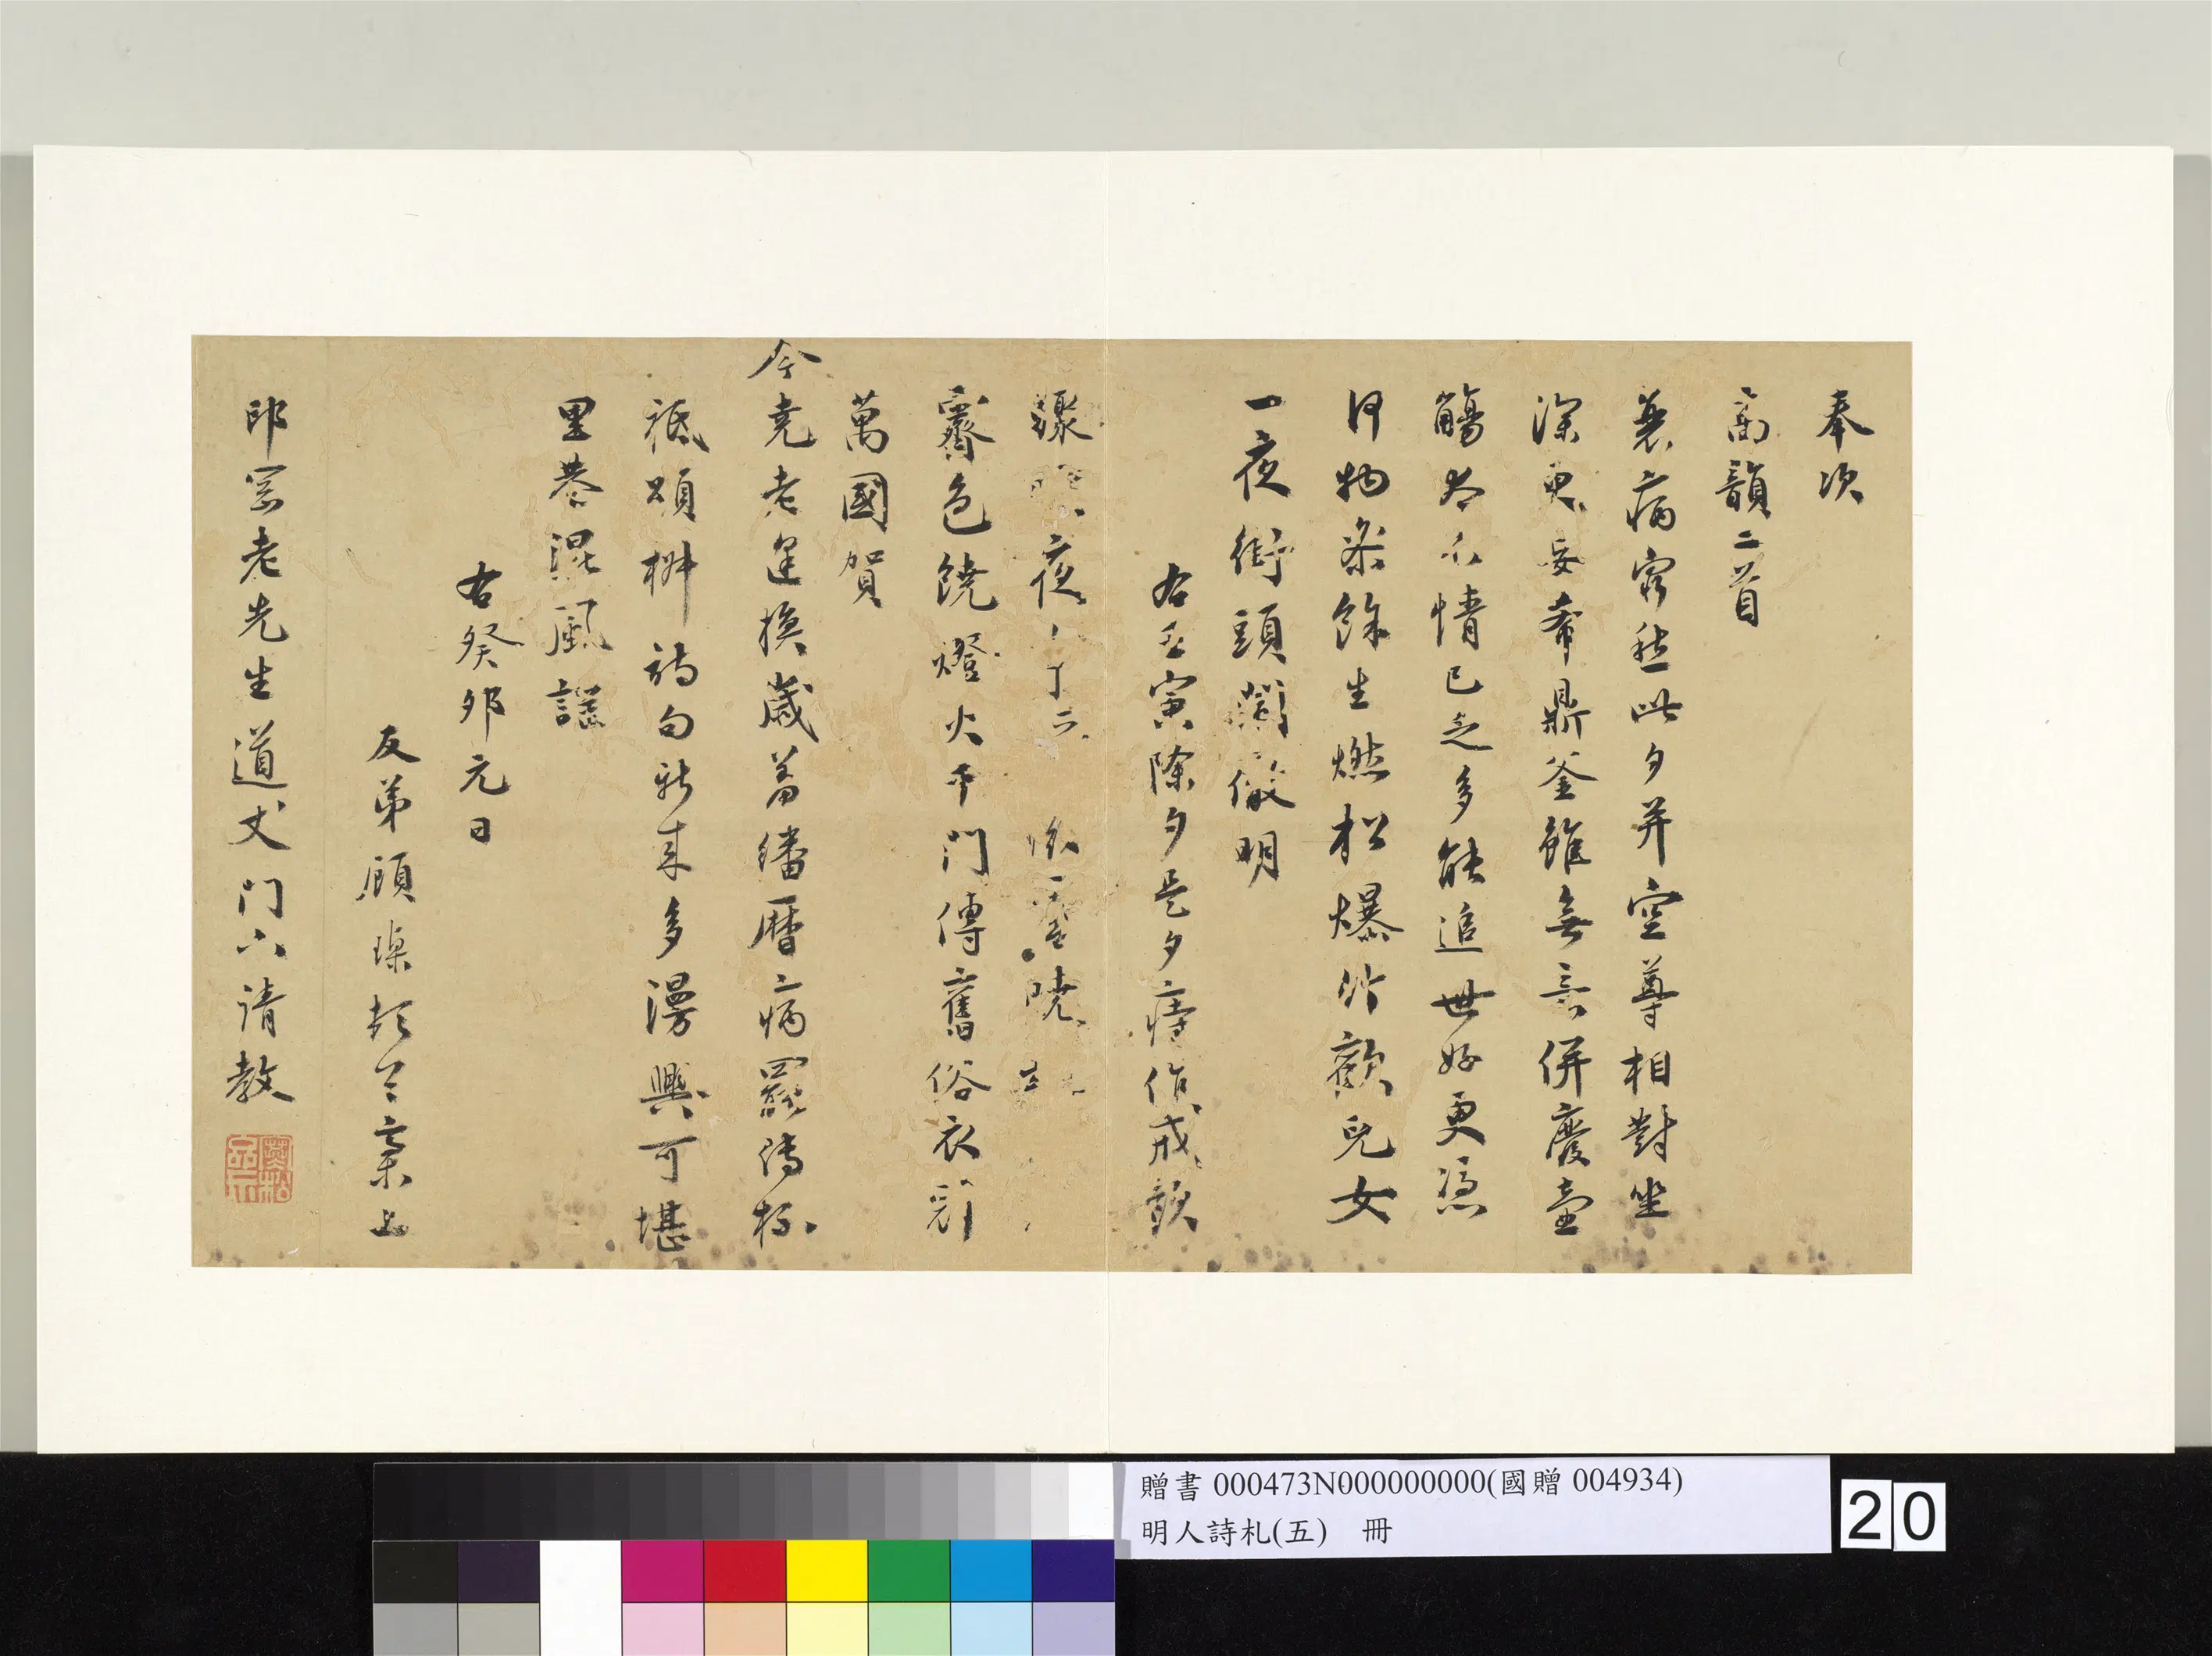 奉次
高韻二首
衰病窮愁此夕并空尊相對坐
深更妄希鼎釜雖無言併廢壺
觴太不情已乏多能追世好更憑
何物樂餘生燃松爆竹歡兒女
一夜街頭鬧徹明
右壬寅除夕是夕痔作戒飲
驟 夜 曉
霽色饒燈火千門傳舊俗衣冠
萬國賀
今堯老逢換歲羞繙曆病罷傳杯
祗頌椒詩句新來多漫興可堪
里巷混風謠
右癸卯元日
友弟顧璘頓首稾上
邱容老老先生道丈門下請教
贈書 000473N000000000(國贈 004934)
明人詩札(五) 冊
20